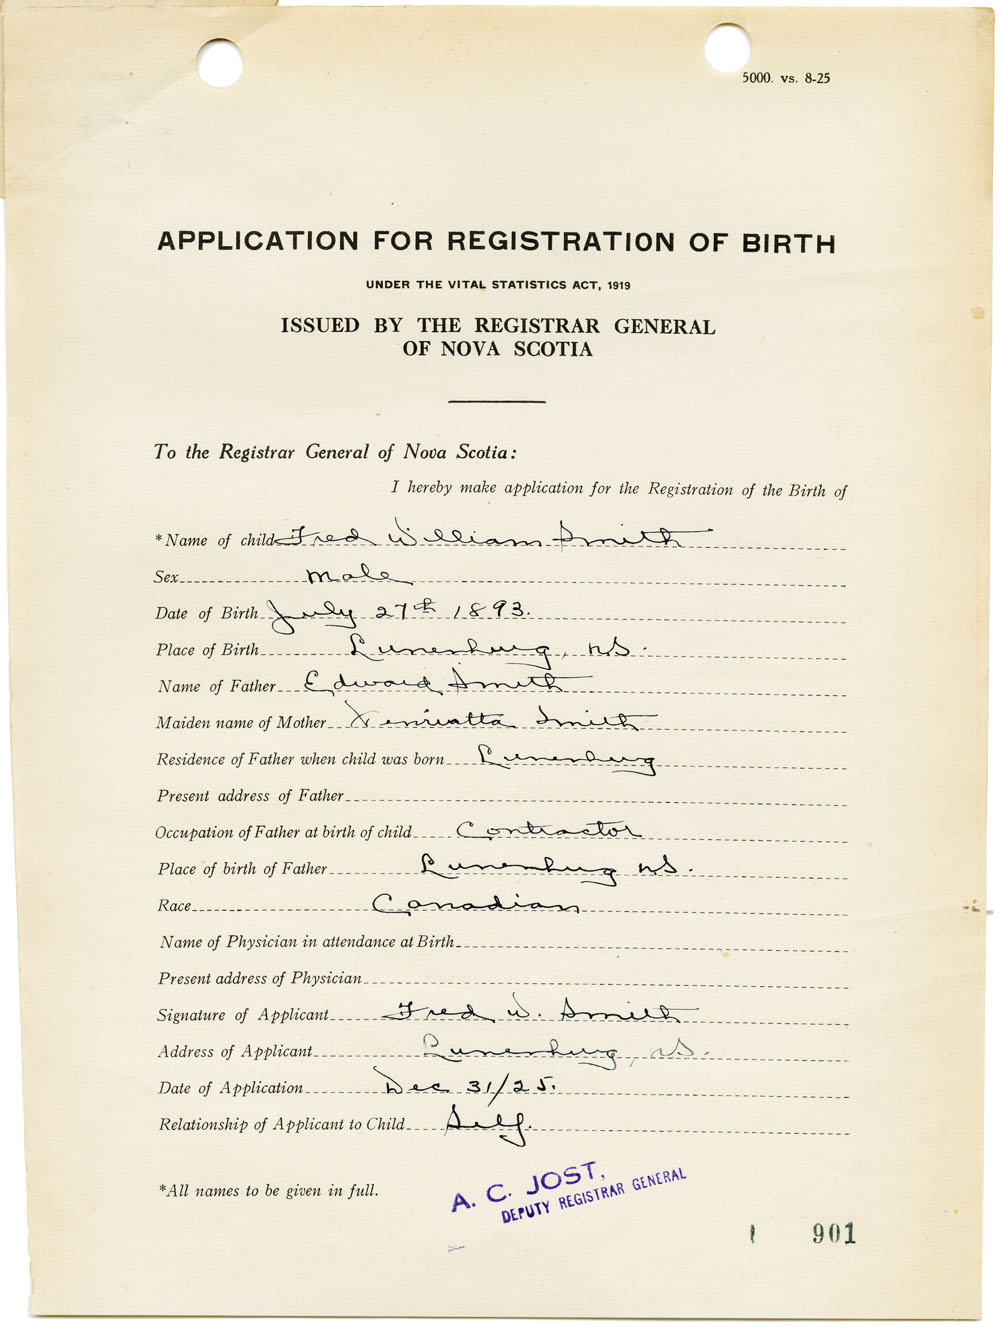 5000. vs. 8-25
APPLICATION FOR REGISTRATION OF BIRTH
UNDER THE VITAL STATISTICS ACT, 1919
ISSUED BY THE REGISTRAR GENERAL
OF NOVA SCOTIA
To the Registrar General of Nova Scotia:
I hereby make application for the Registration of the Birth of
*Name of child Fred William Smith
Sex Male
Date of Birth July 27th 1893.
Place of Birth Lunenburg, NS.
Name of Father Edward Smith
Maiden name of Mother Henrietta Smith
Residence of Father when child was born Lunenburg
Present address of Father
Occupation of Father at birth of child Contractor
Place of birth of Father Lunenburg NS.
Race Canadian
Name of Physician in attendance at Birth
Present address of Physician
Signature of Applicant Fred W. Smith
Address of Applicant Lunenburg, NS.
Date of Application Dec 31/25.
Relationship of Applicant to Child Self.
*All names to be given in full.
A. C. JOST,
DEPUTY REGISTRAR GENERAL
901